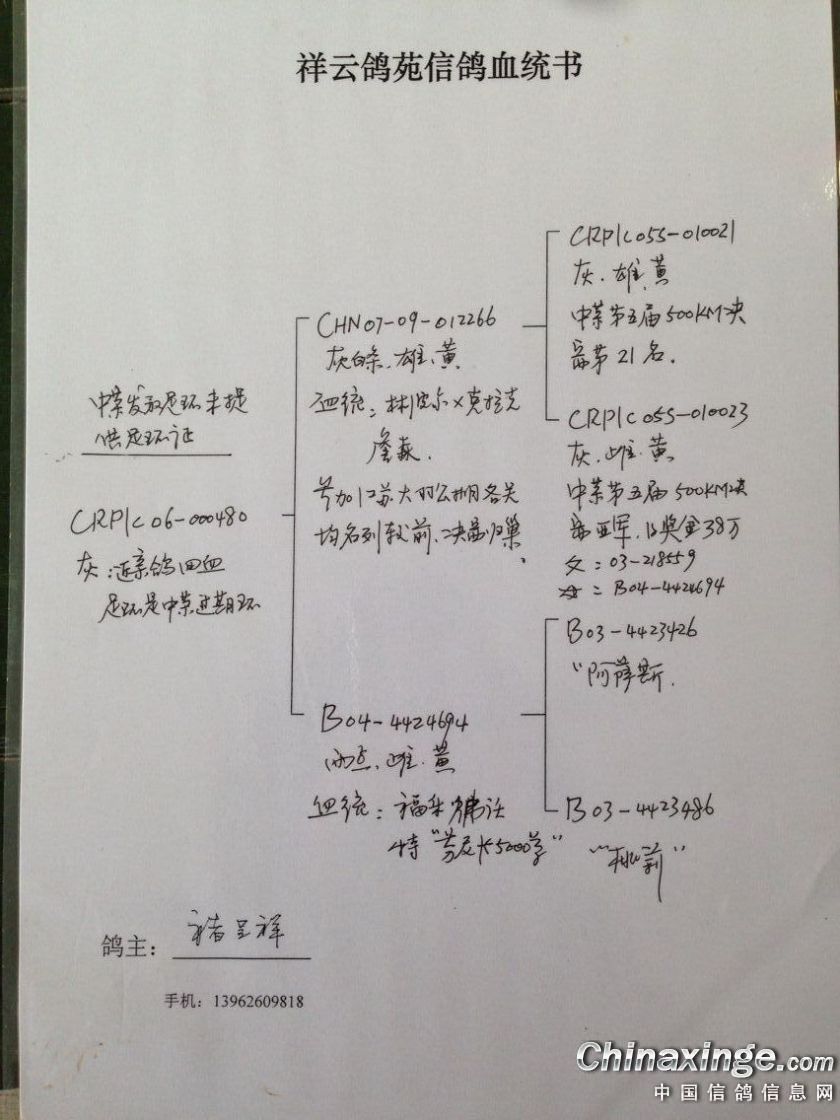 祥云鸽苑信鸽血统书
CRPIC055-010021
灰.雄.黄
中荣第五届500KM决
赛第21名.
CHN07-09-012266
灰白条.雄.黄
血统:林波尔x克拉克
詹森.
参加江苏大羽公棚各关
均名列较前,决赛归巢.
CRPIC055-010023
灰.雌.黄
中荣第五届500KM决
赛亚军,奖金38万
父:03-218559
母:B04-4424694
中荣发放足环未提
供足环证
CRPIC06-000480
灰:近亲鸽回血
足环是中荣过期环
B03-4423426
"阿萨斯.
B04-4424694
雨点.雌.黄
血统:福来佛沃
特"劳尼长5000号"
B03-4423486
"桃莉"
鸽主:褚呈祥
手机:13962609818
Chinaxinge.com
中国信鸽信息网